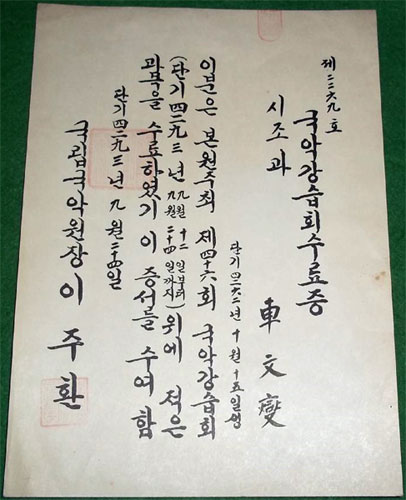 제二二六九호
국악강습회수료증
시조과 車文燮
단기四二六二년十월十五일생
이분은 본원주최 제四十六회 국악강습회
(단기四二九三년 九월十二일부터 九월二十四일까지) 위에 적은
과목을 수료하였기 이 증서를 수여함
단기四二九三년九월二十四일
국립국악원장 이주환